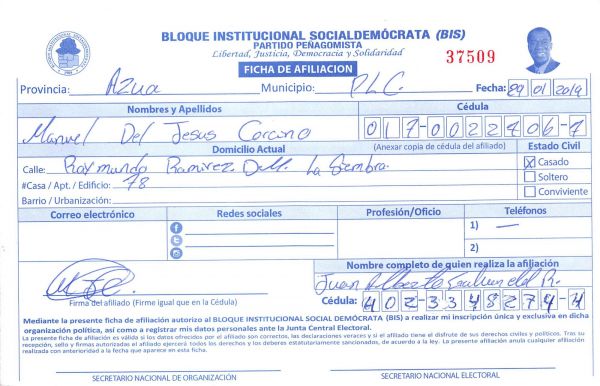 BLOQUE INSTITUCIONAL SOCIALDEMÓCRATA (BIS)
PARTIDO PEÑAGOMISTA
Libertad, Justicia, Democracia y Solidaridad
37509
FICHA DE AFILIACION
Provincia: Azua Municipio: P.L.C. Fecha: 29 01 2019
Nombres y Apellidos Cédula
Manuel Del Jesus 017-0022406-7
Domicilio Actual (Anexar copia de cédula del afiliado) Estado Civil
Calle: Raymundo Ramirez D.M. La Siembra. X Casado
#Casa / Apt. / Edificio: 78 Soltero
Barrio / Urbanización: Conviviente
Correo electrónico Redes sociales Profesión/Oficio Teléfonos
1) —
2)
Nombre completo de quien realiza la afiliación
Juan Alberto R.
Firma del afiliado (Firme igual que en la Cédula) Cédula: 402-3348274-4
Mediante la presente ficha de afiliación autorizo al BLOQUE INSTITUCIONAL SOCIAL DEMÓCRATA (BIS) a realizar mi inscripción única y exclusiva en dicha
organización política, así como a registrar mis datos personales ante la Junta Central Electoral.
La presente ficha de afiliación es válida si los datos ofrecidos por el afiliado son correctos, las declaraciones veraces y si el titular disfruta de sus derechos civiles y políticos. Tras su
recepción, sello y firmas autorizadas el afiliado ejercerá todos los derechos y los deberes estatutariamente sancionados, de acuerdo a la ley. La presente afiliación anula cualquier afiliación
realizada con anterioridad a la fecha que aparece en esta ficha.
SECRETARIO NACIONAL DE ORGANIZACIÓN SECRETARIO NACIONAL ELECTORAL